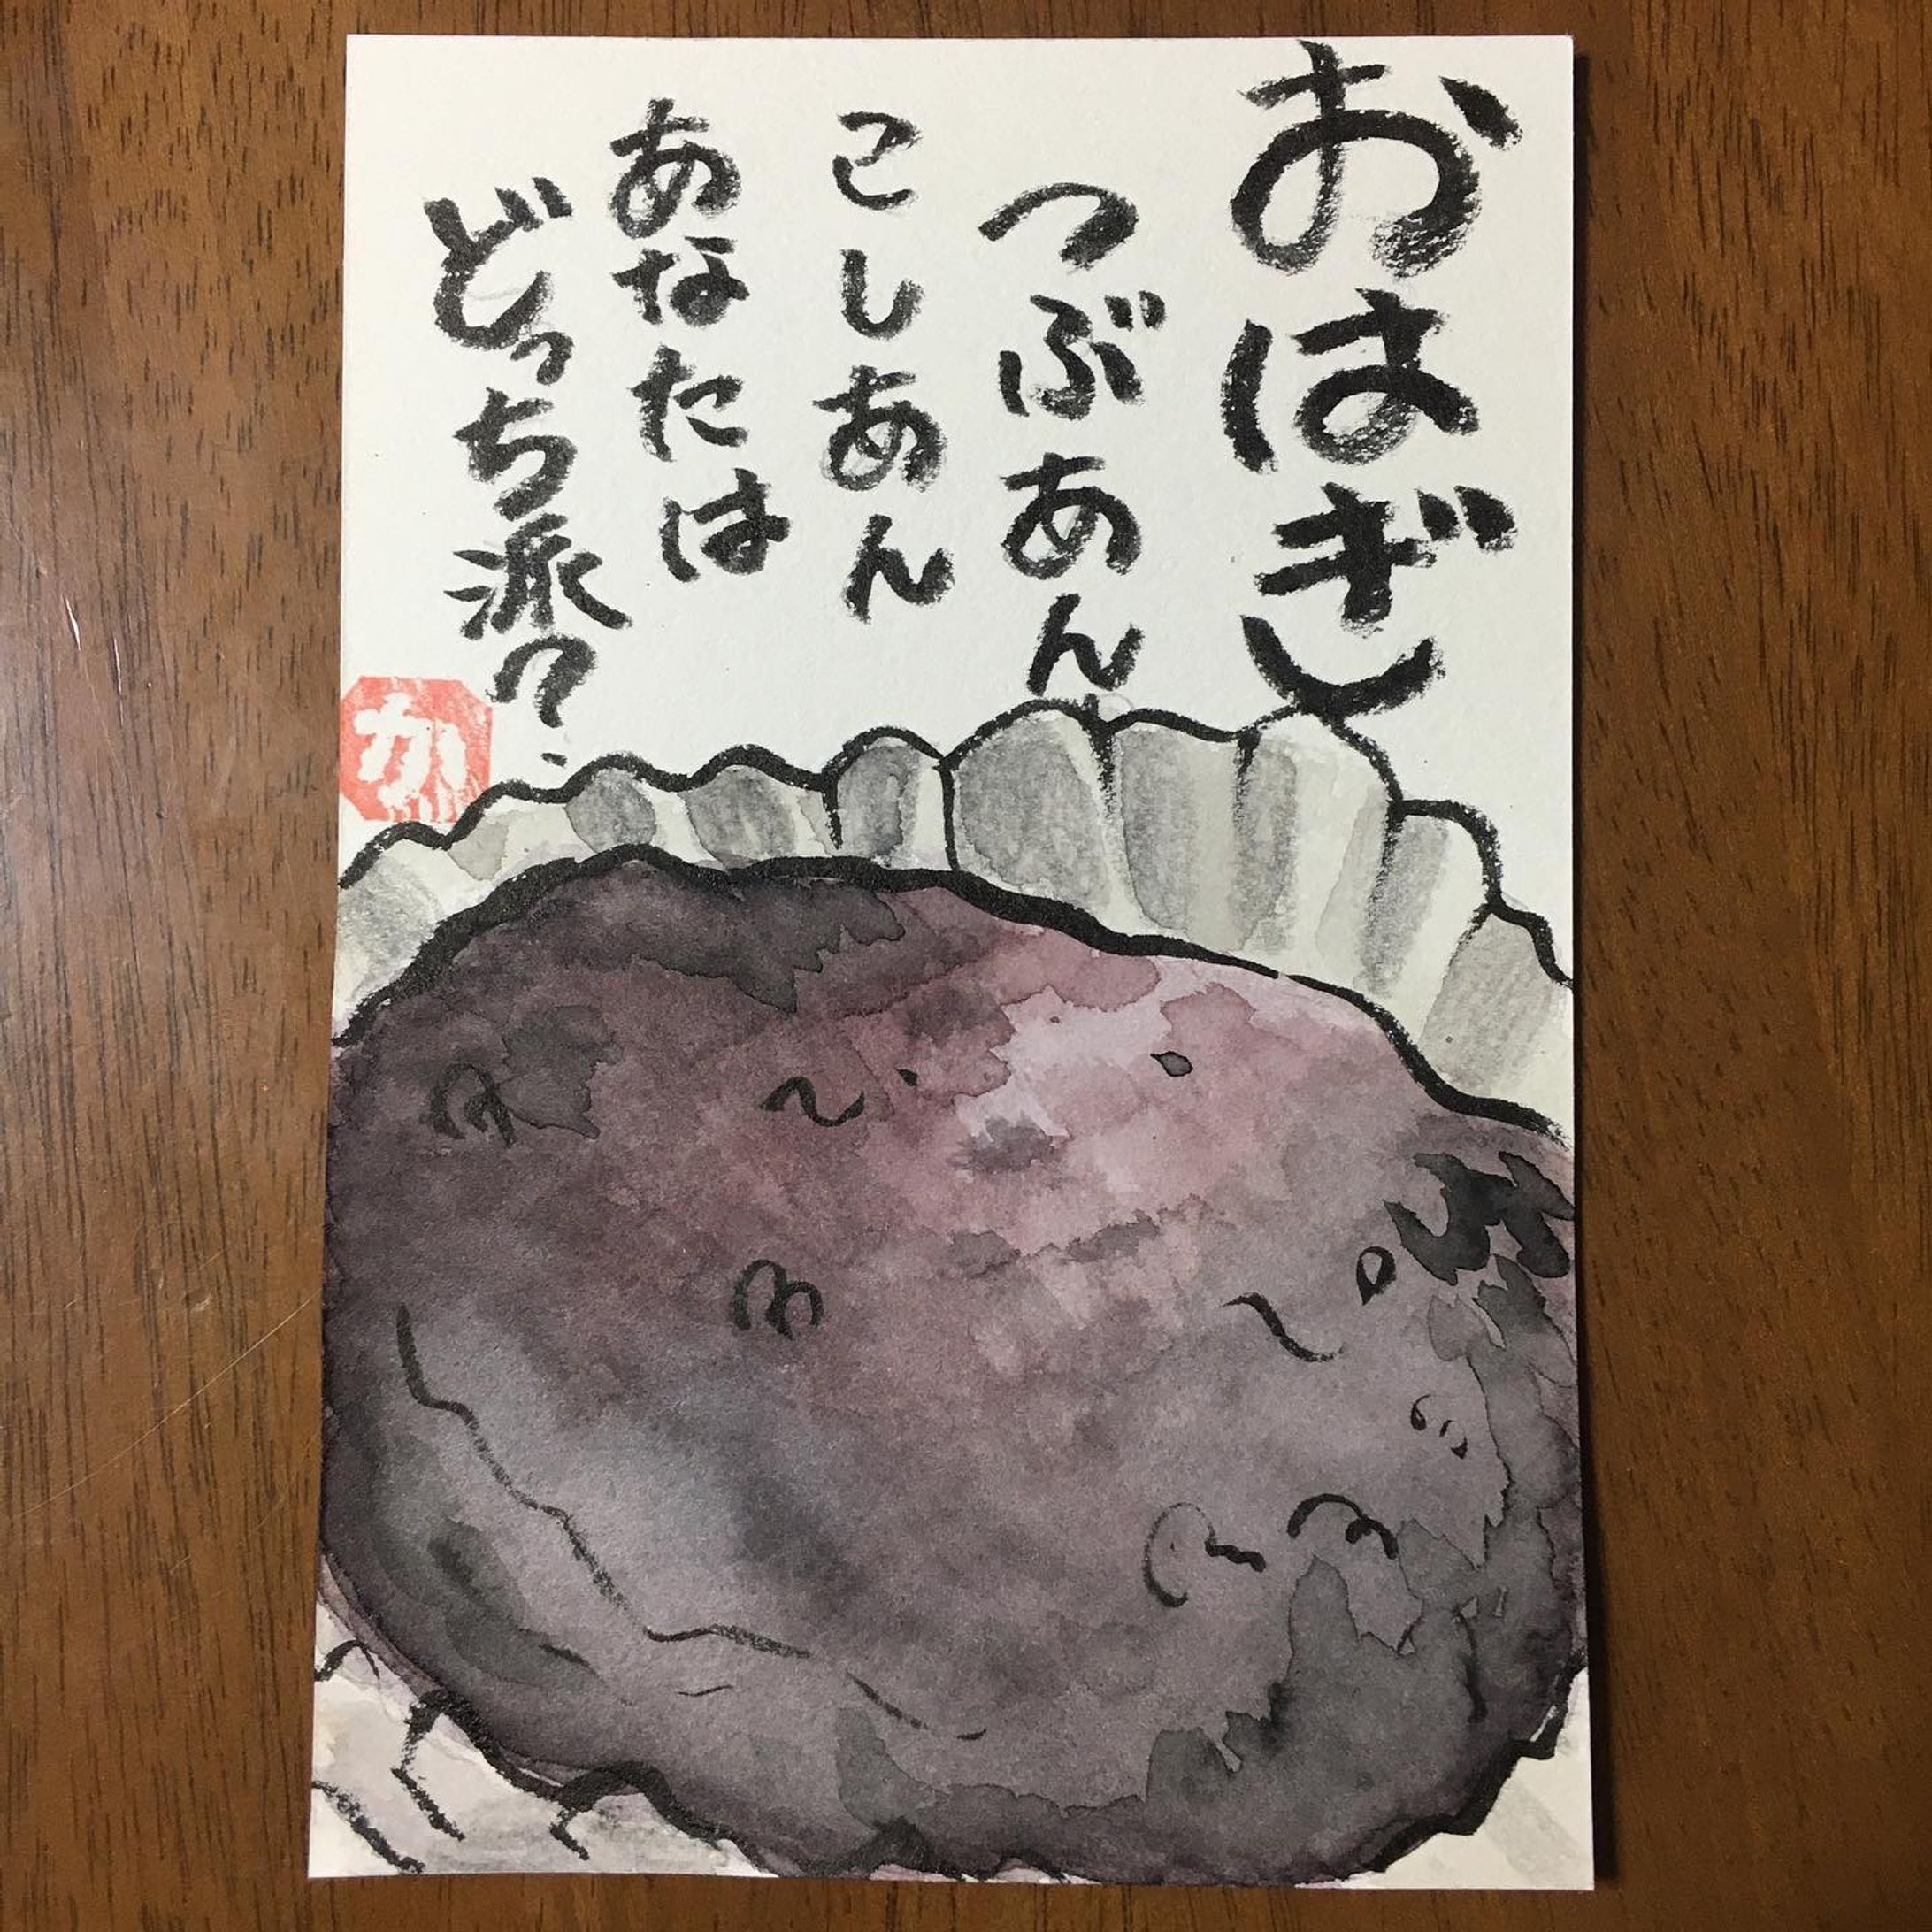 おはぎ
つぶあん
こしあん
あなたは
どっち派?
か